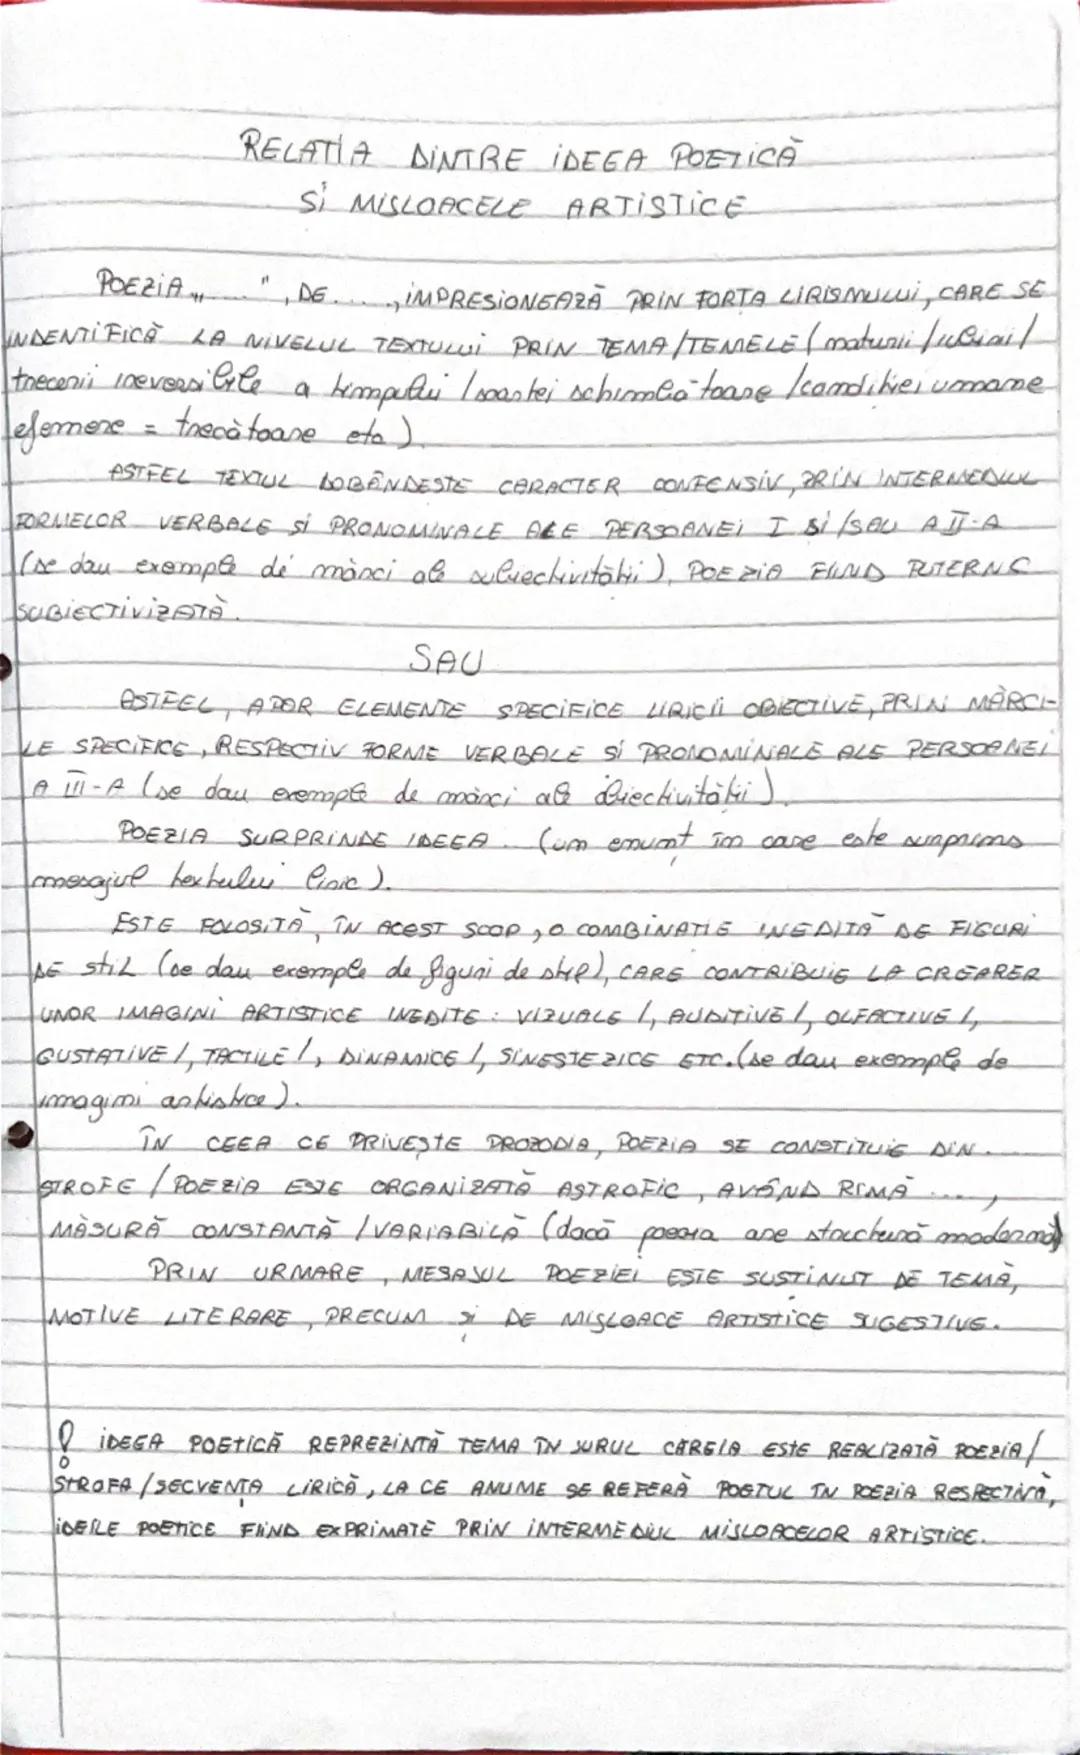 RELAȚIA DINTRE IDEEA POETICĂ
ȘI MIJLOACELE ARTISTICE
POEZIA „......", DE ......, IMPRESIONEAZĂ PRIN FORȚA LIRISMULUI, CARE SE
INDENTIFICĂ LA NIVELUL TEXTULUI PRIN TEMA/TEMELE (naturii/iubirii/
trecerii ireversibile a timpului/soartei schimbătoare/condiției umane
efemere = trecătoare etc).
ASTFEL TEXTUL DOBÂNDEȘTE CARACTER CONFENSIV, PRIN INTERMEDIUL
FORMELOR VERBALE ȘI PRONOMINALE ALE PERSOANEI I ȘI/SAU A II-A
(se dau exemple de mărci ale subiectivității), POEZIA FIIND PUTERNIC
SUBIECTIVIZATĂ.
SAU
ASTFEL, APAR ELEMENTE SPECIFICE LIRICII OBIECTIVE, PRIN MĂRCI-
LE SPECIFICE, RESPECTIV FORME VERBALE ȘI PRONOMINALE ALE PERSOANEI
A III-A (se dau exemple de mărci ale obiectivității).
POEZIA SURPRINDE IDEEA... (un enunț în care este surprins
mesajul textului liric).
ESTE FOLOSITĂ, ÎN ACEST SCOP, O COMBINAȚIE INEDITĂ DE FIGURI
DE STIL (se dau exemple de figuri de stil), CARE CONTRIBUIE LA CREAREA
UNOR IMAGINI ARTISTICE INEDITE: VIZUALE /, AUDITIVE /, OLFACTIVE /,
GUSTATIVE /, TACTILE /, DINAMICE /, SINESTEZICE ETC. (se dau exemple de
imagini artistice).
ÎN CEEA CE PRIVEȘTE PROZODIA, POEZIA SE CONSTITUIE DIN ...
STROFE / POEZIA ESTE ORGANIZATĂ ASTROFIC, AVÂND RIMĂ ....,
MĂSURĂ CONSTANTĂ / VARIABILĂ (dacă poezia are structură modernă)
PRIN URMARE, MESAJUL POEZIEI ESTE SUSȚINUT DE TEMĂ,
MOTIVE LITERARE, PRECUM ȘI DE MIJLOACE ARTISTICE SUGESTIVE.
! IDEEA POETICĂ REPREZINTĂ TEMA ÎN JURUL CĂREIA ESTE REALIZATĂ POEZIA/
STROFA/SECVENȚA LIRICĂ, LA CE ANUME SE REFERĂ POETUL ÎN POEZIA RESPECTIVĂ,
IDEILE POETICE FIIND EXPRIMATE PRIN INTERMEDIUL MIJLOACELOR ARTISTICE.